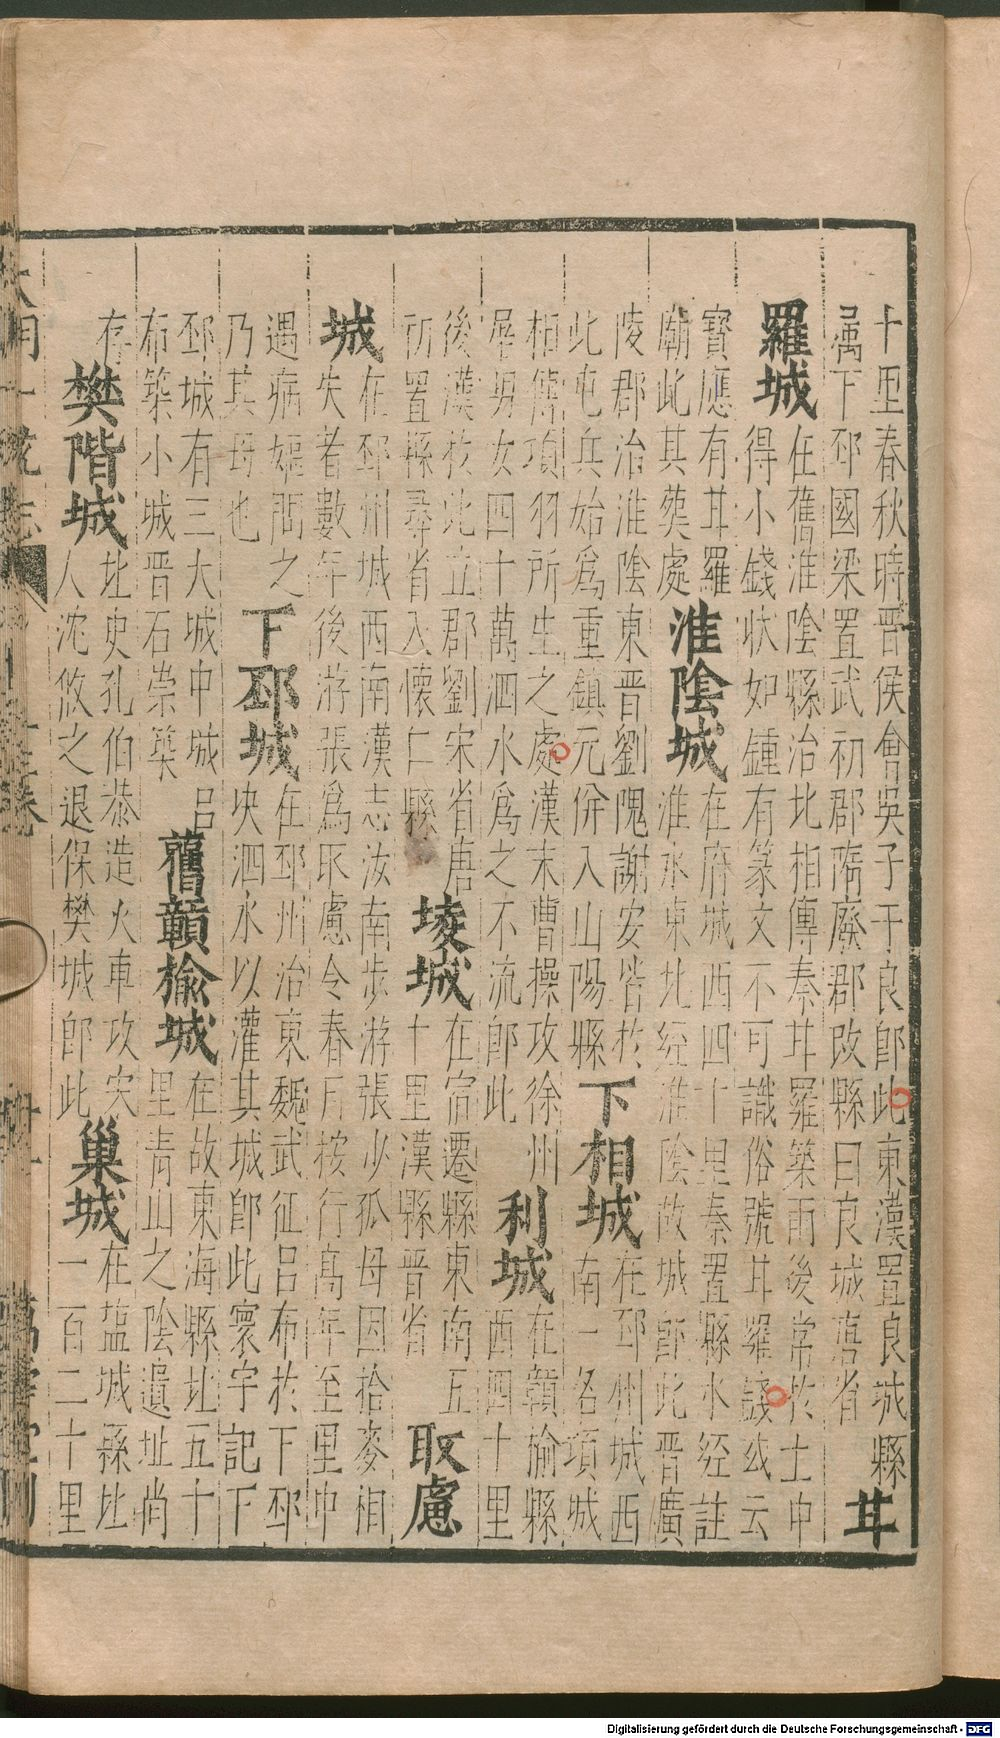 十里春秋時晋侯會吳子于良即此東漢置良城縣
屬下邳國梁置武初郡隋廢郡改縣曰良城唐省
甘
羅城
在舊淮隂縣治北相傳秦甘羅築雨後常於土中
得小錢狀如鍾有篆文不可識俗號甘羅錢或云
寳應有甘羅
廟此其塟處
淮隂城
在府城西四十里秦置縣水經註
淮水東北經淮隂故城即此晋廣
陵郡治淮隂東晋劉隗謝安皆於
此屯兵始爲重鎮元併入山陽縣
下相城
在邳州城西
南一名項城
相傳項羽所生之處漢末曹操攻徐州
屠男女四十萬泗水爲之不流即此
利城
在贑榆縣
西四十里
後漢於此立郡劉宋省唐
所置縣尋省入懷仁縣
堎城
在宿遷縣東南五
十里漢縣晋省
取慮
城
在邳州城西南漢志汝南步游張少孤母因拾麥相
失者數年後游張爲取慮令春月按行髙年至里中
遇病嫗問之
乃其母也
下邳城
在邳州治東魏武征吕布於下邳
决泗水以灌其城即此寰宇記下
邳城有三大城中城吕
布築小城晋石崇築
舊贑榆城
在故東海縣北五十
里青山之隂遺址尚
存
樊階城
北史孔伯恭造火車攻宋
人沈攸之退保樊城即此
巢城
在盐城縣北
一百二十里
大明一統志
萬壽堂刊
Digitalisierung gefördert durch die Deutsche Forschungsgemeinschaft - DFG